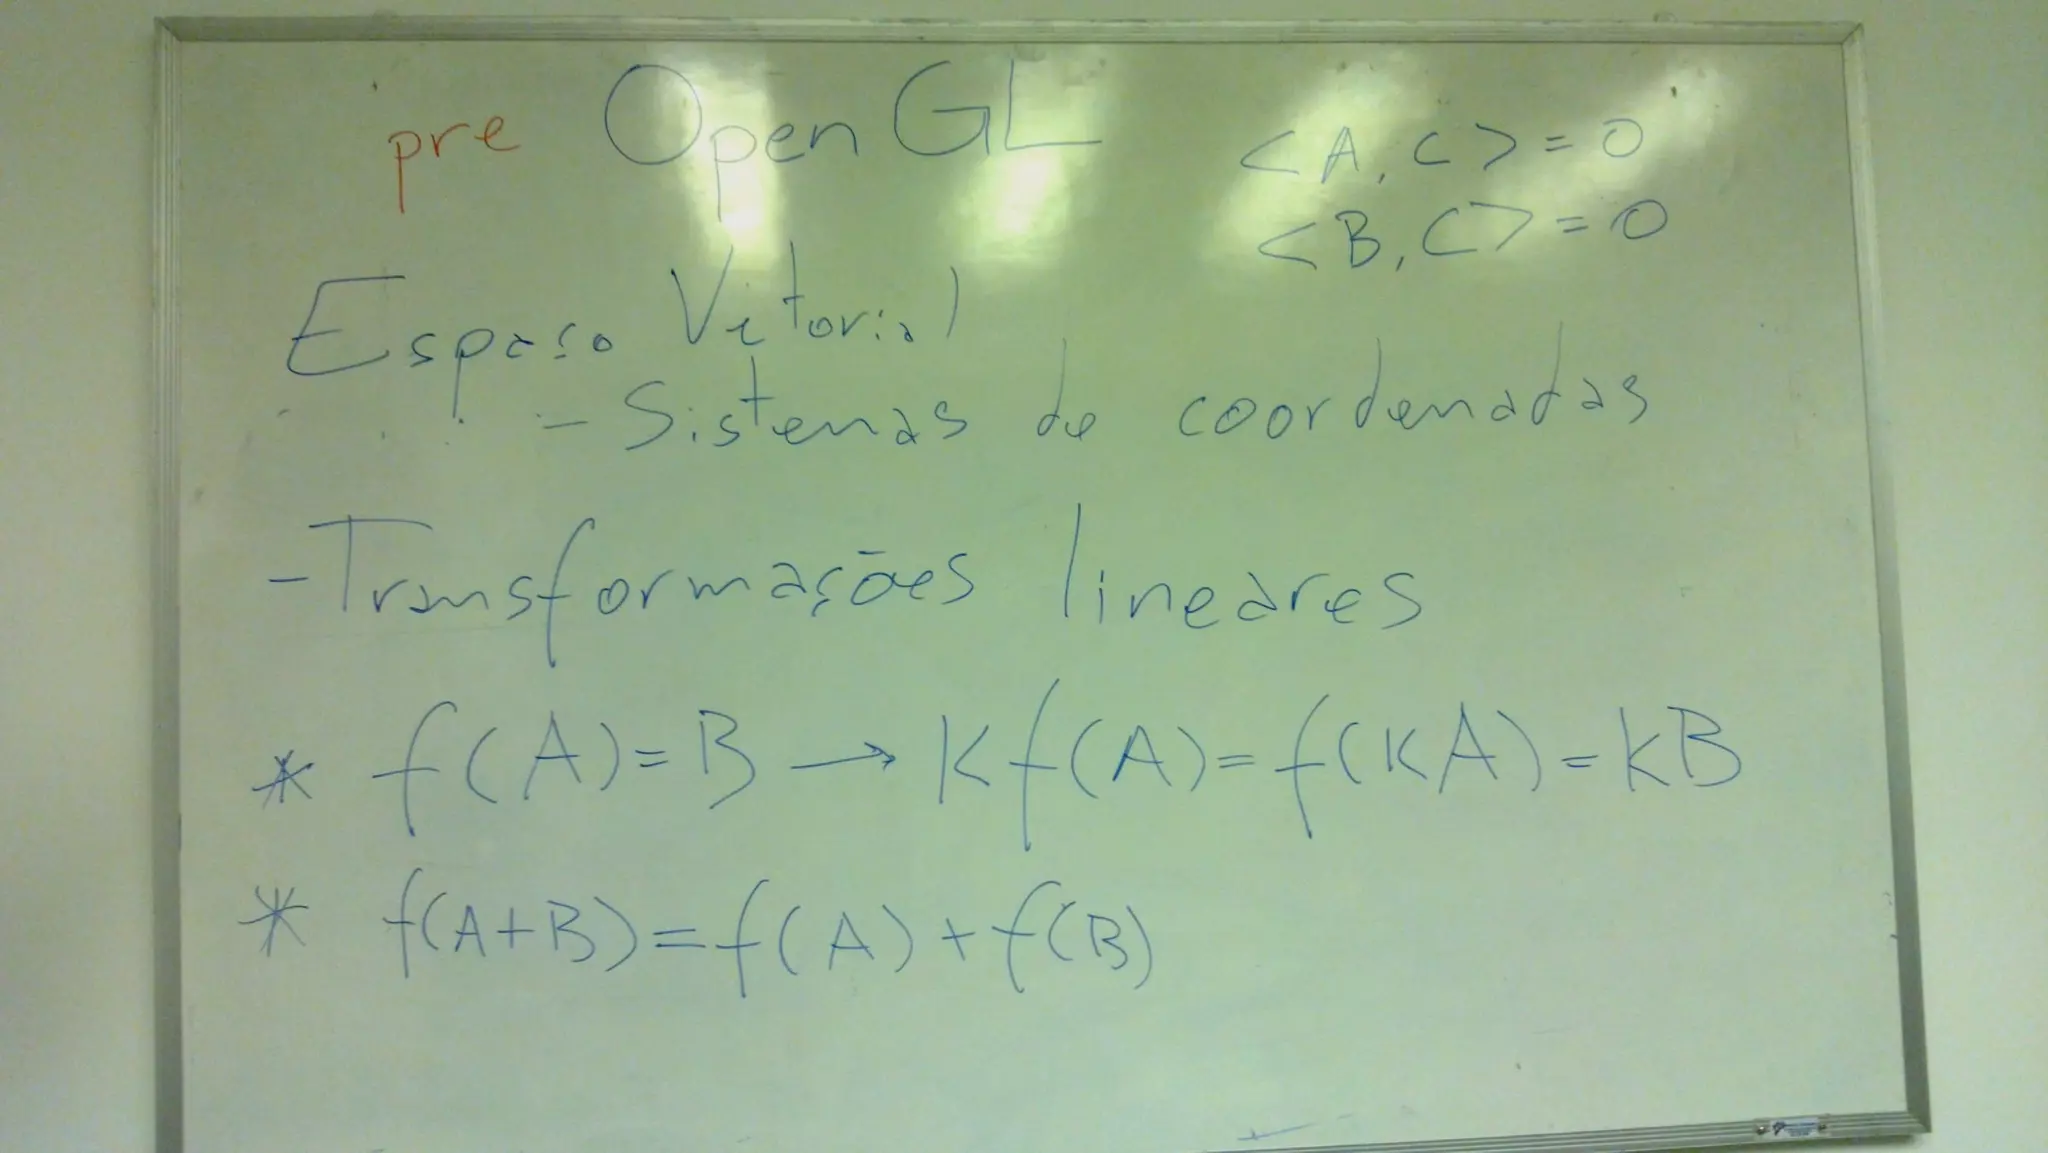 pre OpenGL
<A, C> = 0
<B, C> = 0
Espaço Vetorial
- Sistemas de coordenadas
- Transformações lineares
* f(A) = B → Kf(A) = f(KA) = KB
* f(A+B) = f(A) + f(B)